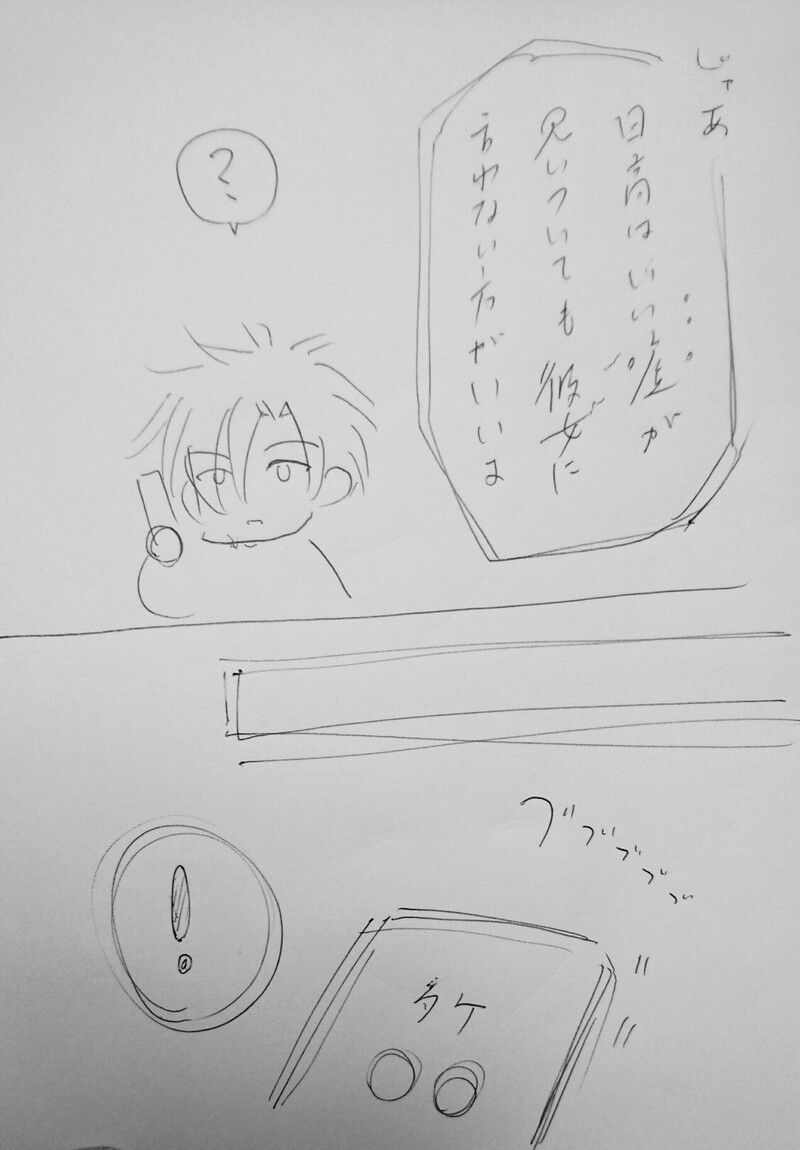 じゃあ
日高はいい嘘が
見いついても彼女に
言わない方がいいよ
?
ブブブブブ
!
タケ